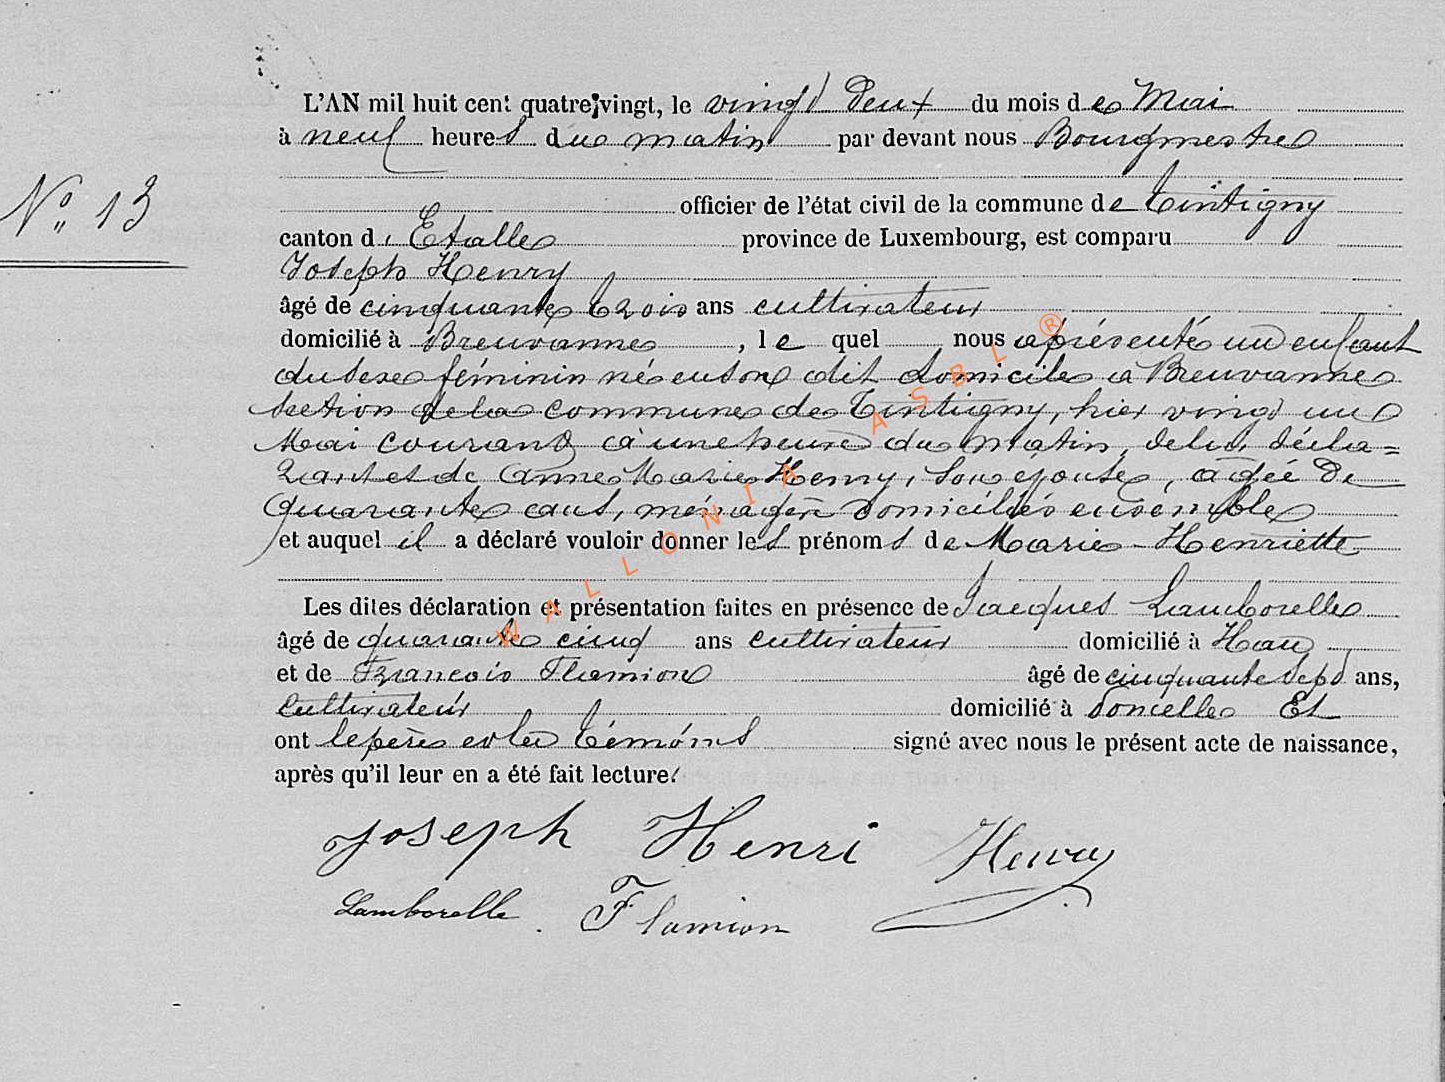 L'AN mil huit cent quatre-vingt, le vingt deux du mois de Mai
à neuf heures du matin par devant nous Bourgmestre
officier de l'état civil de la commune de Tintigny
N° 13
canton d' Etalle province de Luxembourg, est comparu
Joseph Henry
âgé de cinquante trois ans cultivateur
domicilié à Breuvanne, le quel nous a présenté un enfant
du sexe féminin né en son dit domicile à Breuvanne
section de la commune de Tintigny, hier vingt un
Mai courant à une heure du matin, de lui décla=
rant et de Anne Marie Henry, son epouse, agée de
quarante ans, ménagère domiciliés ensemble
et auquel il a déclaré vouloir donner les prénoms de Marie-Henriette
Les dites déclaration et présentation faites en présence de Jacques Lamborelle
âgé de quarante cinq ans cultivateur domicilié à Han
et de Francois Flamion âgé de cinquante sept ans,
cultivateur domicilié à Poncelle Et
ont le père et les témoins signé avec nous le présent acte de naissance,
après qu'il leur en a été fait lecture.
Joseph Henri Henry
Lamborelle. F Flamion
WALLONIA ASBL ®